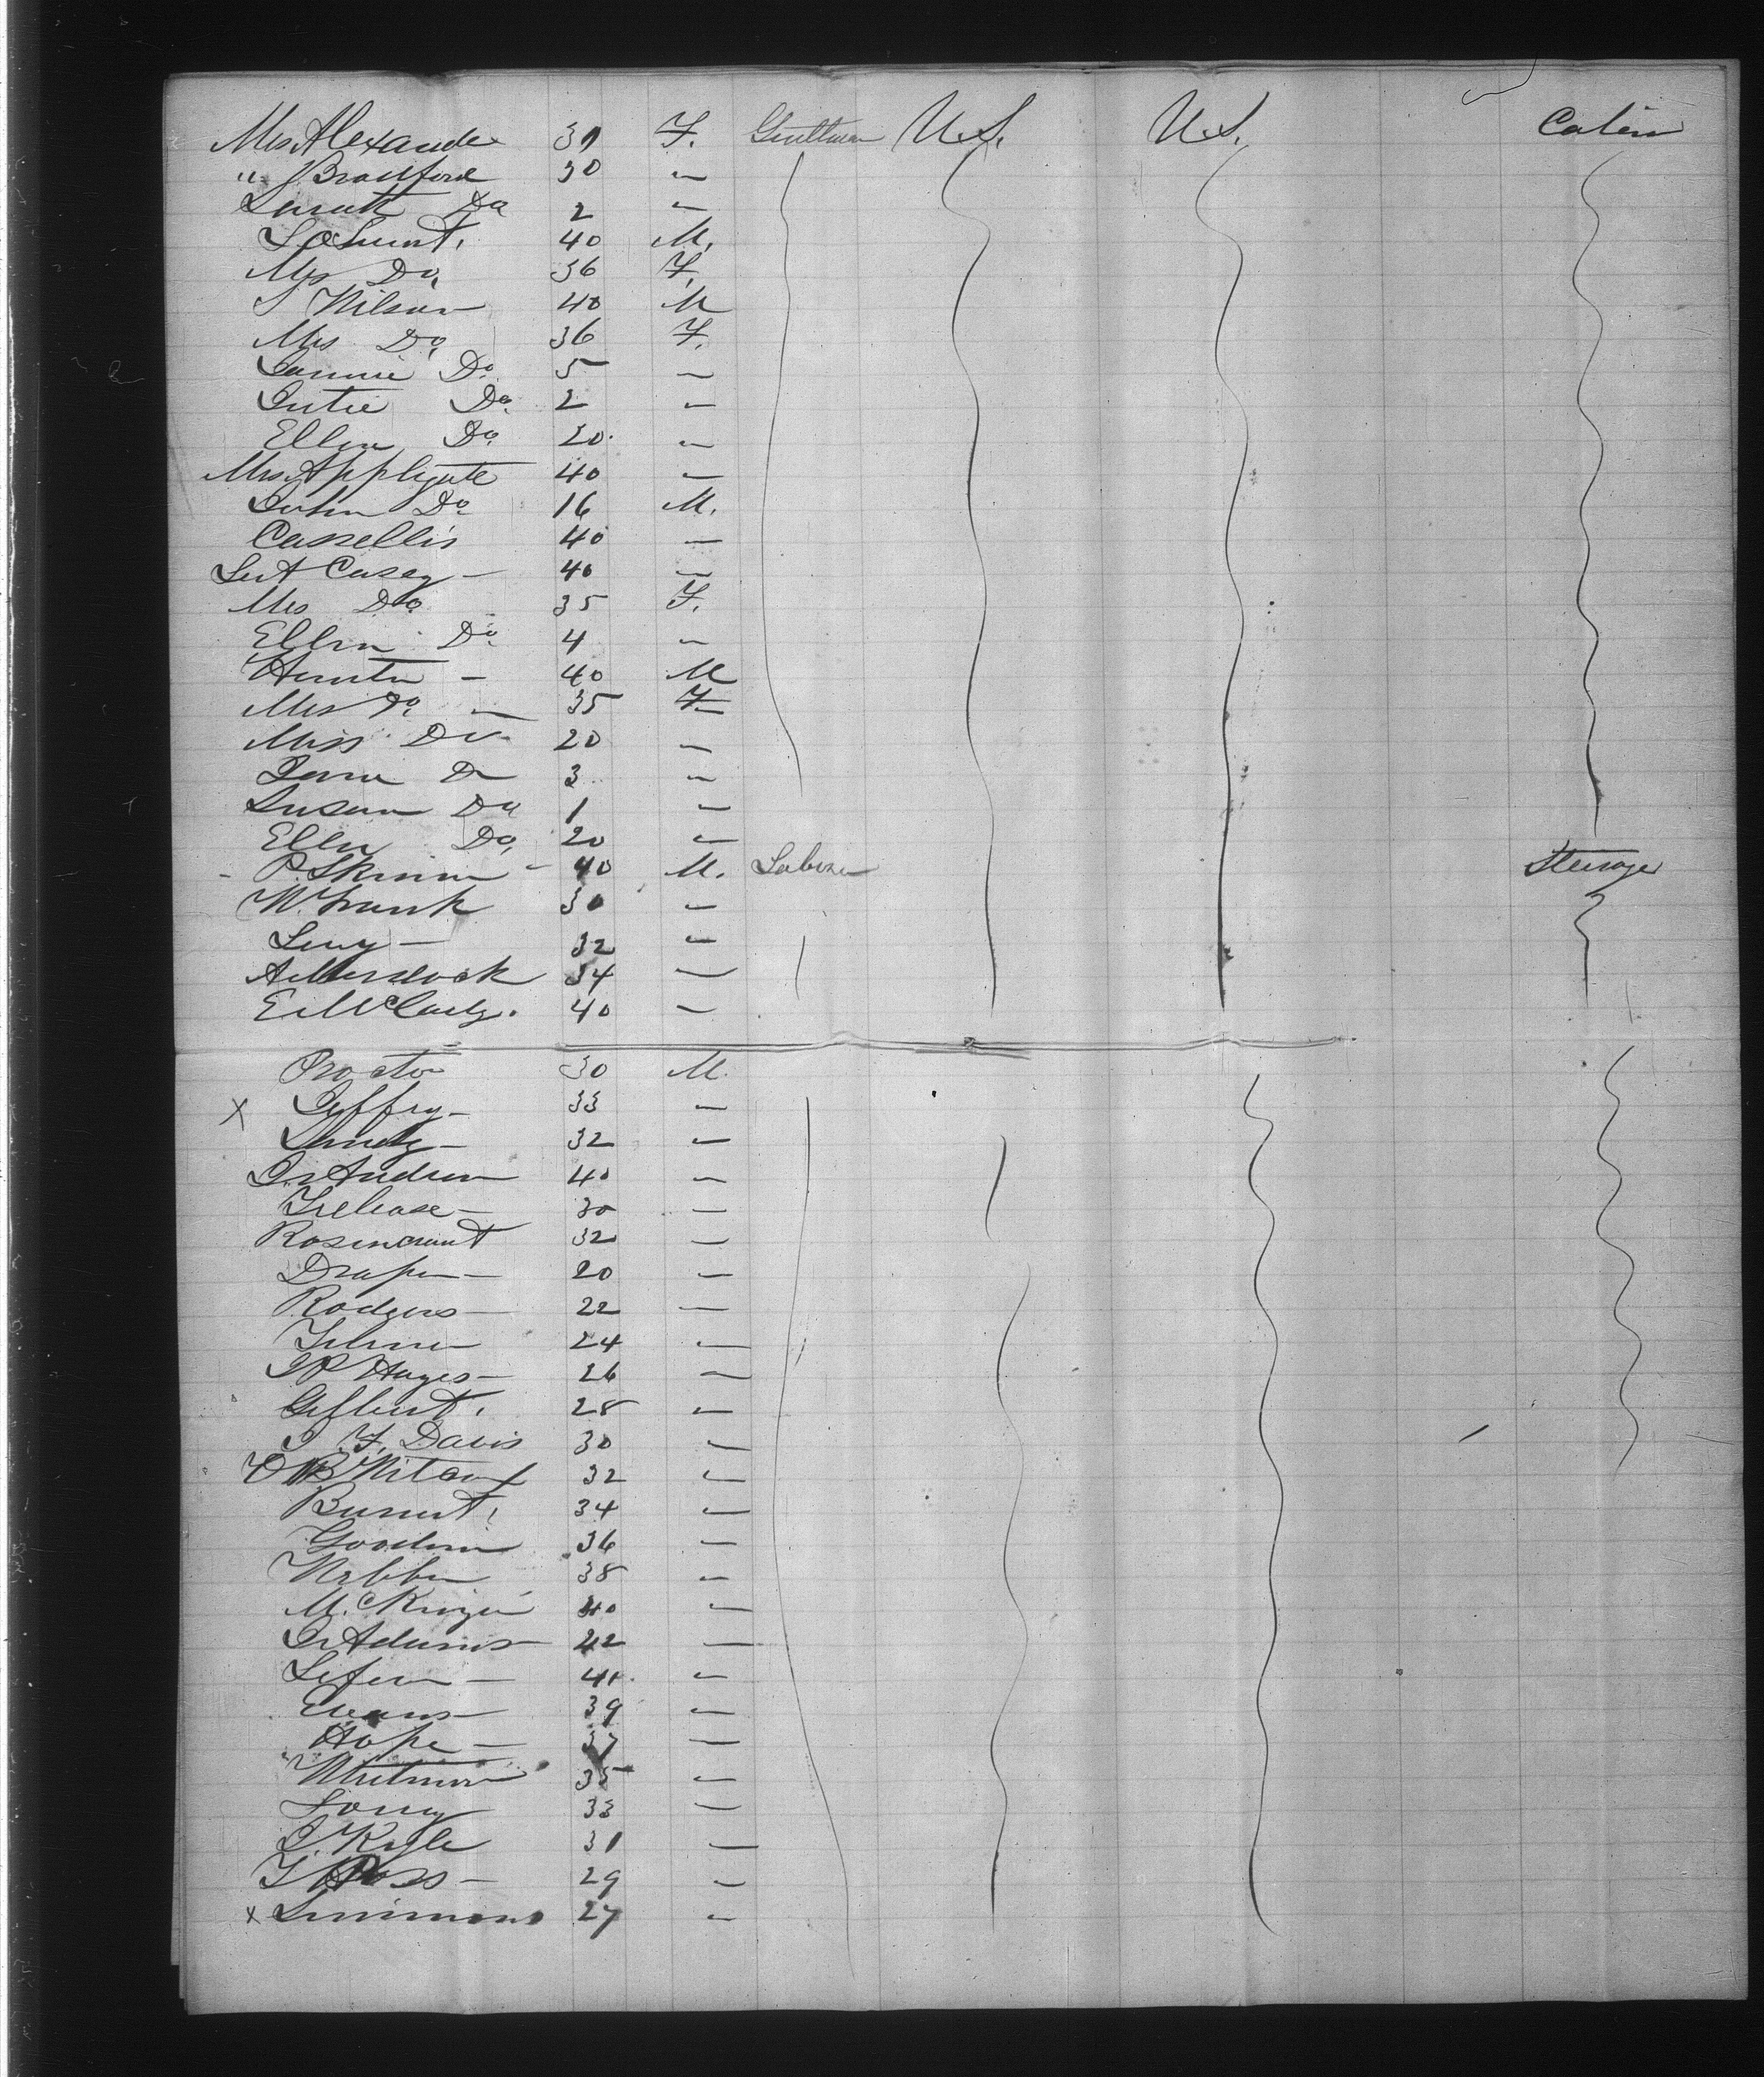 Mrs Alexander 30 F. Gentleman U.S. U.S. Cabin
" Bradford 30 "
Sarah Do 2 "
40 M.
Mrs Do 36 F.
S Wilson 40 M
Mrs Do 36 F.
Jennie Do 5 "
Do 2 "
Ellen Do 20 "
Mrs Applegate 40 "
John Do 16 M.
Cassellis 40 "
Casey 40 "
Mrs Do 35 F.
Ellen Do 4 "
Hunter 40 M
Mrs Do 35 F
Miss Do 20 "
Jane Do 3 "
Susan Do 1 "
Ellen Do 20 "
P. Skinner 40 M. Laborer Steerage
W. Frank 30 "
Levy 32 "
A Murdock 34 "
E. McCarty 40 "
Proctor 30 M.
x Jeffry 33 "
32 "
Dr Andrew 40 "
Trelease 30 "
Rosencrant 32 "
Draper 20 "
Rodgers 22 "
24 "
J P Hayes 26 "
Gilbert 28 "
J. F. Davis 30 "
32 "
34 "
Goodwin 36 "
Webber 38 "
McKinzie 40 "
Dr Adams 42 "
41 "
Evans 39 "
Hope 37 "
Whitmore 35 "
33 "
J. Kyle 31 "
Ross 29 "
x Simmons 27 "